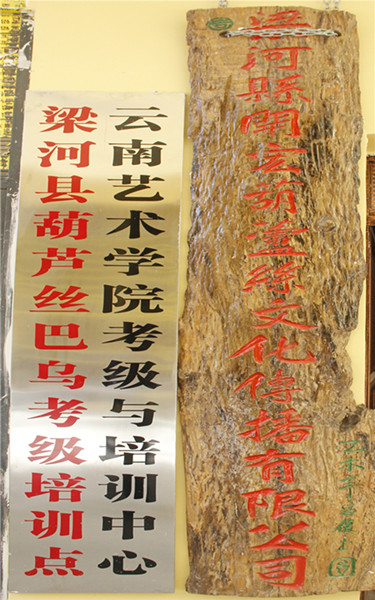 云南艺术学院考级与培训中心
梁河县葫芦丝巴乌考级培训点
梁河縣開宏葫蘆絲文化傳播有限公司